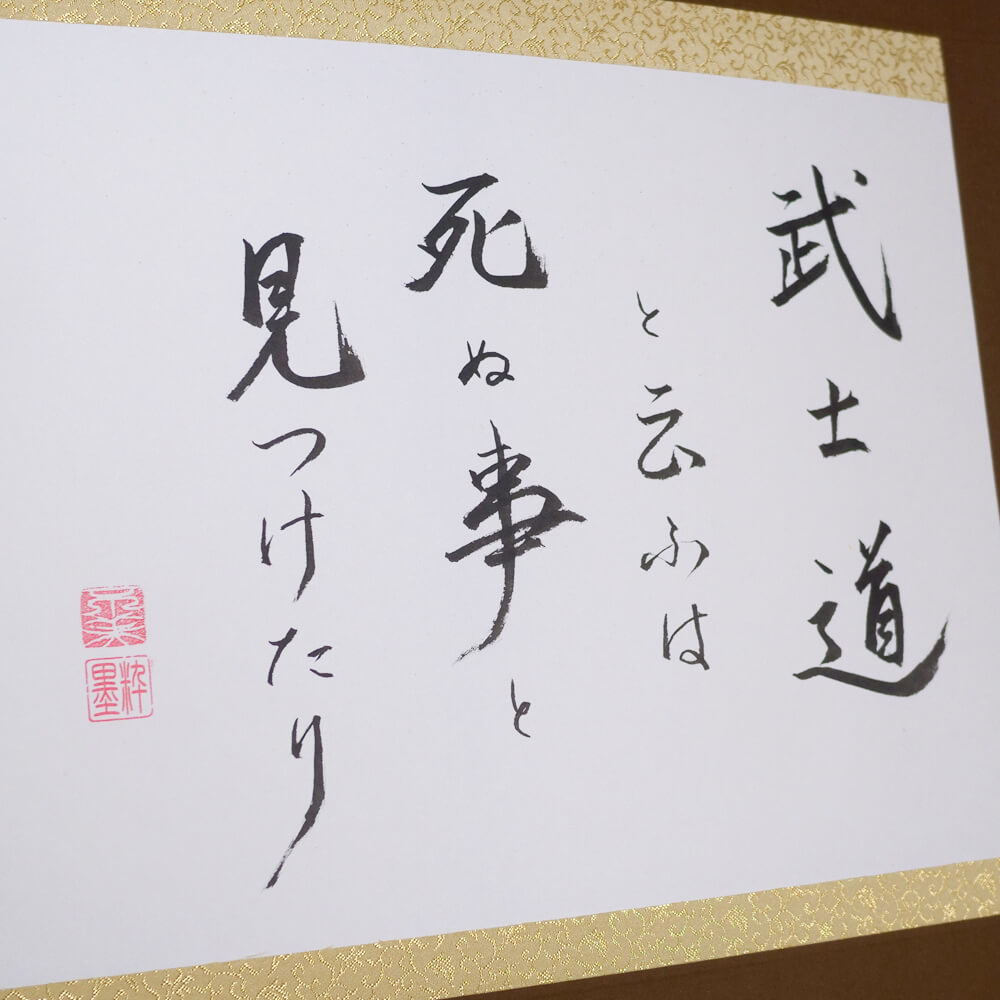 武士道
と云ふは
死ぬ事と
見つけたり
粋墨